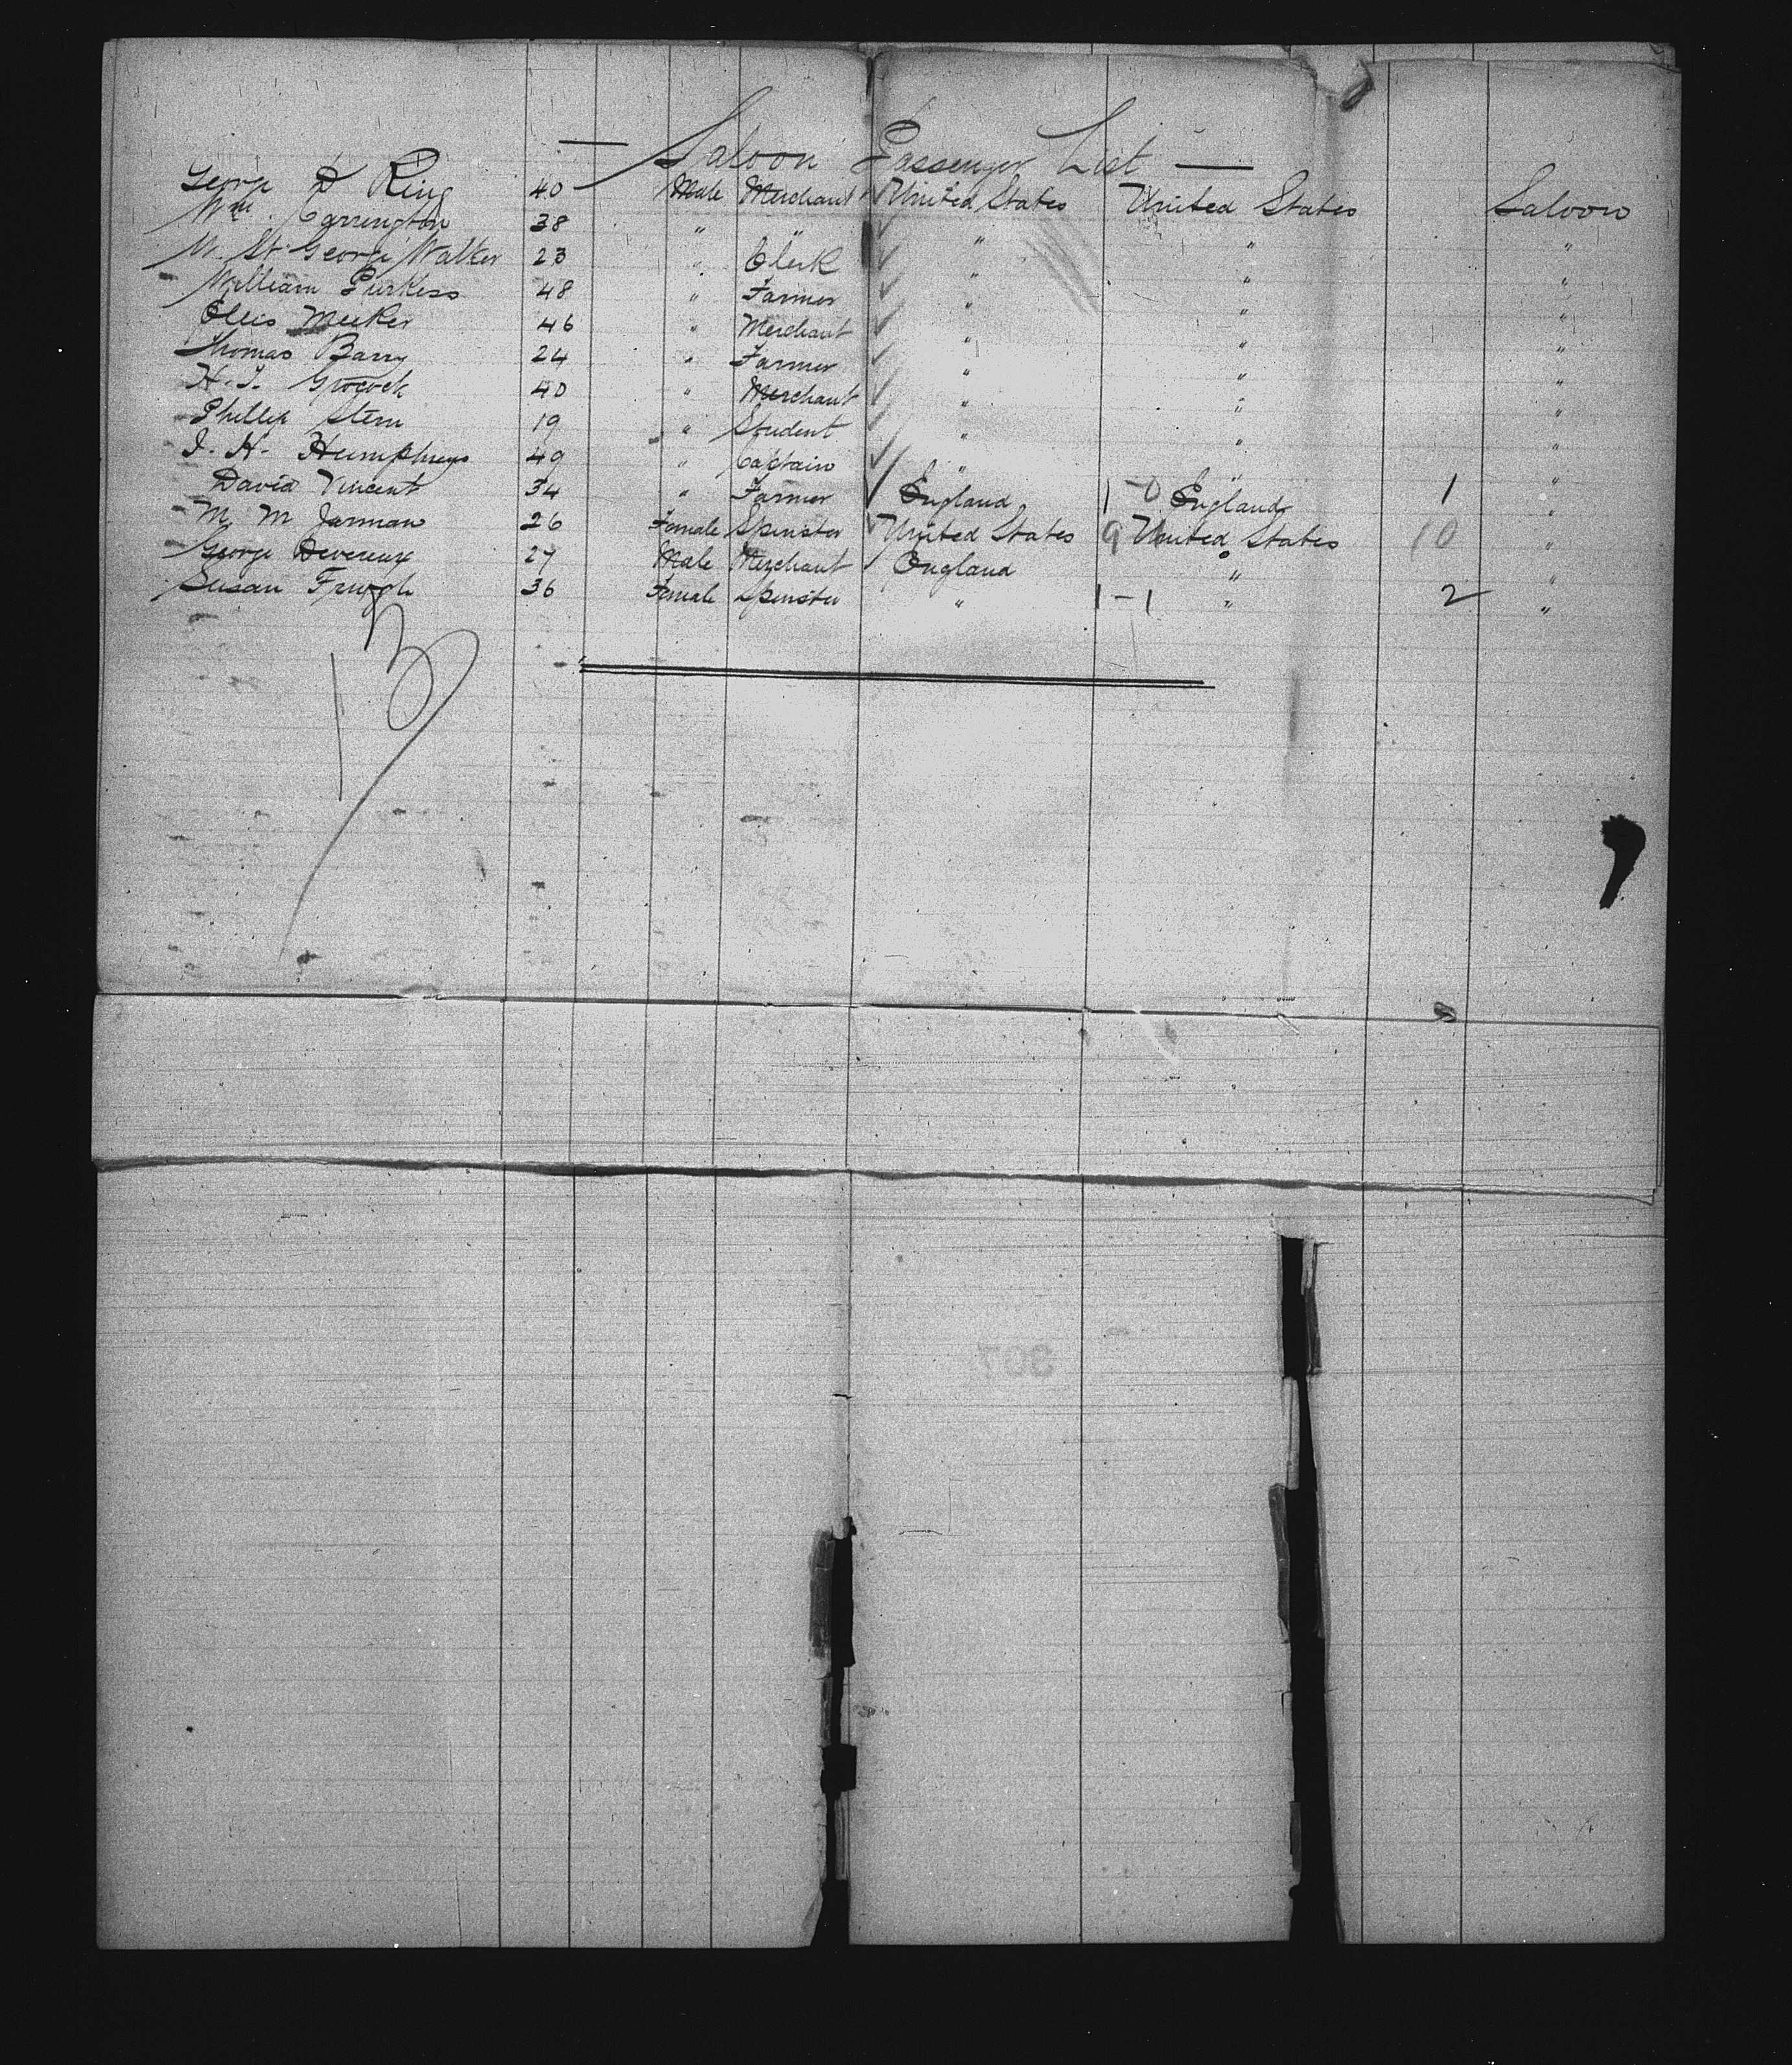 — Saloon Passenger List —
George D King 40 Male Merchant United States United States Saloon
Wm. Carrington 38 " " " " "
W. St George Walker 23 " Clerk " " "
William Purkess 48 " Farmer " " "
Ellis Meeker 46 " Merchant " " "
Thomas Barry 24 " Farmer " " "
H. J. Grocock 40 " Merchant " " "
Phillip Stern 19 " Student " " "
J. H. Humphreys 49 " Captain " " "
David Vincent 34 " Farmer England 1-0 England 1 "
M M Jarman 26 Female Spinster United States 9 United States 10 "
George Devereux 27 Male Merchant England " "
Susan 36 Female Spinster " 1-1 " 2 "
13
307